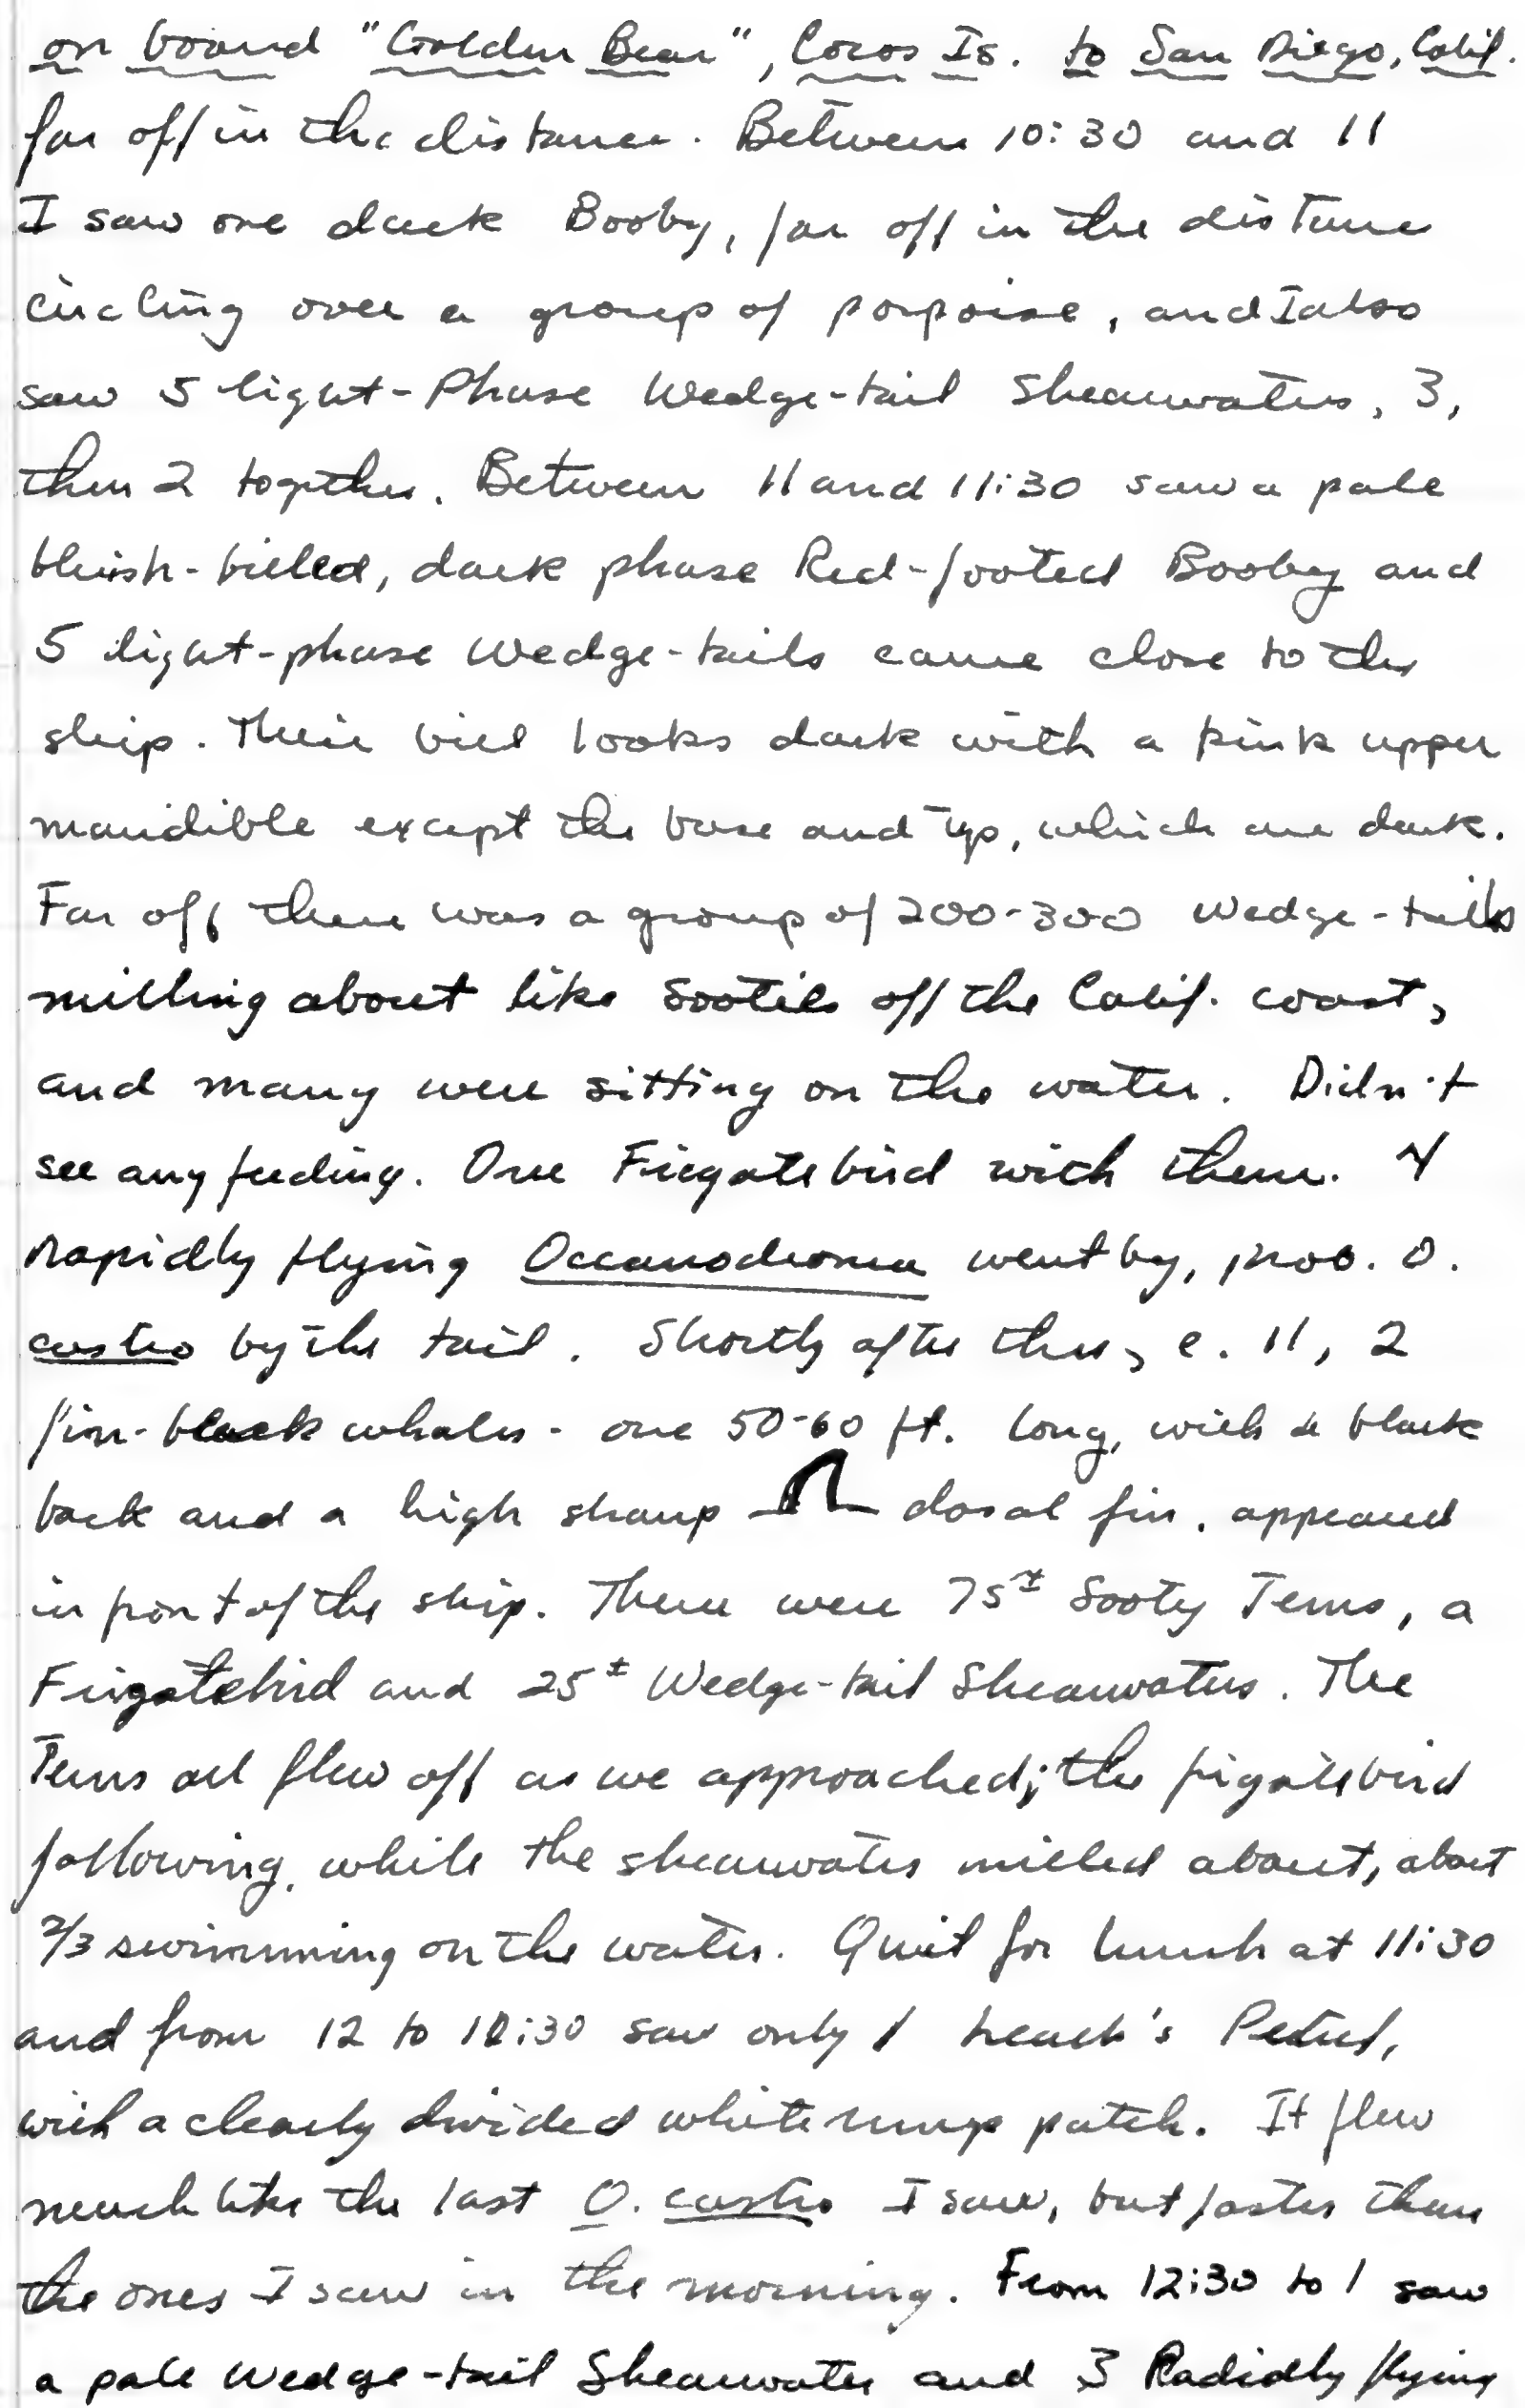 on board "Golden Bear", Cocos Is. to San Diego, Calif.
far off in the distance. Between 10:30 and 11
I saw one dark Booby, far off in the distance
circling over a group of porpoise, and I also
saw 5 light-Phase Wedge-tail Shearwaters, 3,
then 2 together. Between 11 and 11:30 saw a pale
bluish-billed, dark phase Red-footed Booby and
5 light-phase Wedge-tails came close to the
ship. Their bill looks dark with a pink upper
mandible except the base and tip, which are dark.
Far off there was a group of 200-300 Wedge-tails
milling about like Sooties off the Calif. coast,
and many were sitting on the water. Didn't
see any feeding. One Frigatebird with them. 4
rapidly flying Oceanodroma went by, prob. O.
castro by the tail. Shortly after this, c. 11, 2
fin-back whales - one 50-60 ft. long, with a black
back and a high sharp dorsal fin, appeared
in front of the ship. There were 75± Sooty Terns, a
Frigatebird and 25± Wedge-tail Shearwaters. The
Terns all flew off as we approached; the frigatebird
following, while the shearwaters milled about, about
2/3 swimming on the water. Quit for lunch at 11:30
and from 12 to 12:30 saw only 1 Leach's Petrel,
with a clearly divided white rump patch. It flew
much like the last O. castro I saw, but faster than
the ones I saw in the morning. From 12:30 to 1 saw
a pale Wedge-tail Shearwater and 3 Radidly flying